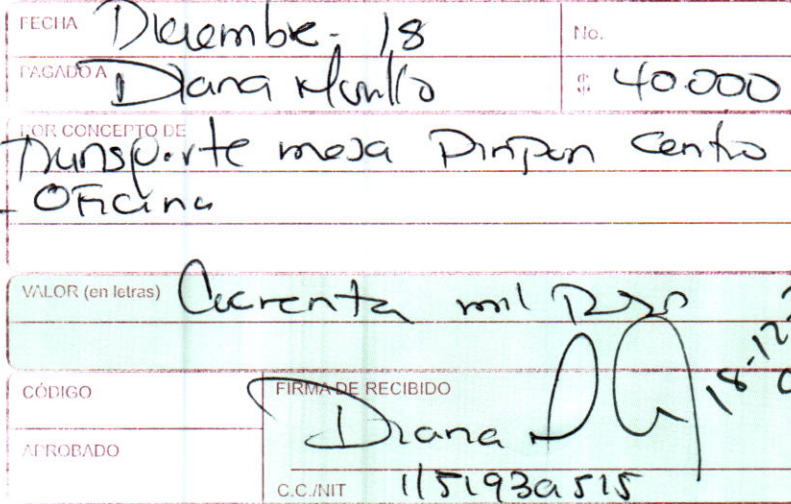 FECHA Diciembre - 18
No.
PAGADO A Diana Murillo
$ 40.000
POR CONCEPTO DE
Transporte mesa Pinpon Centro
- Oficina
VALOR (en letras) Cuarenta mil Pesos
18-12
CÓDIGO
FIRMA DE RECIBIDO
Diana
APROBADO
C.C./NIT